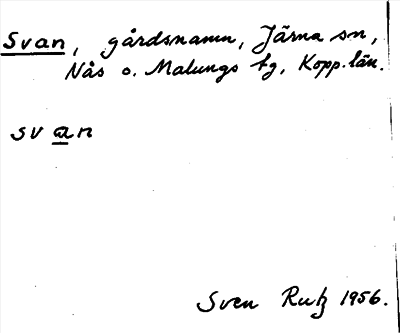 Svan, gårdsnamn, Järna sn,
Nås o. Malungs tg, Kopp. län.
svan
Sven Rutz 1956.